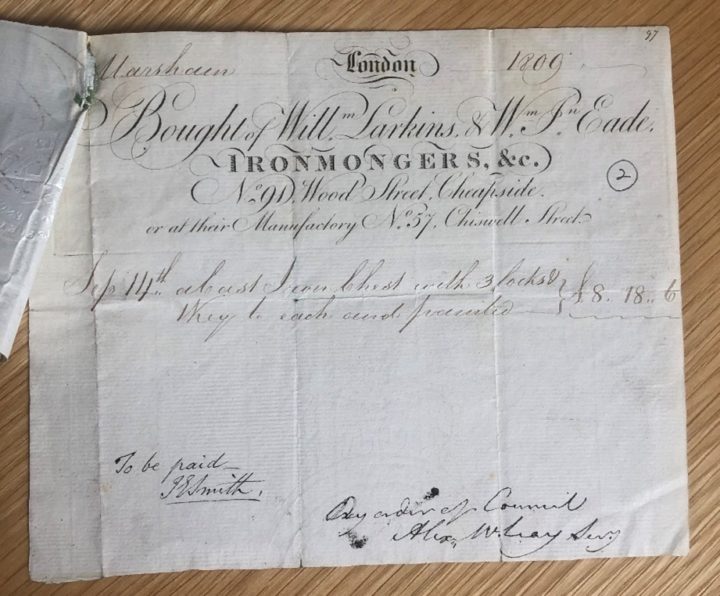 97
Marsham London 1809
Bought of Will.m Larkins, & W.m J.n Eade.
IRONMONGERS, &c.
2
N.o 91, Wood Street, Cheapside.
or at their Manufactory N.o 57, Chiswell Street.
Sep 14th a Cast Iron Chest with 3 locks & } £8..18..6
1 Key to each and painted
To be paid
J E Smith.
By order of Council
Alex. McLeay Secy